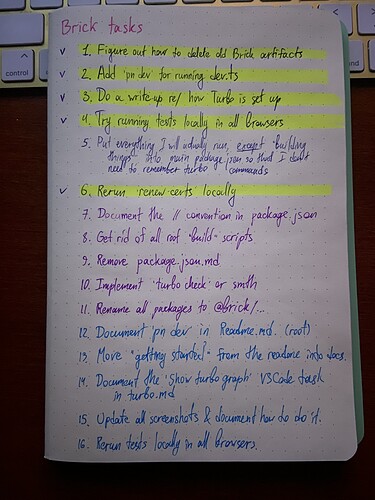 Brick tasks
✓ 1. Figure out how to delete old Brick artifacts
✓ 2. Add 'pn dev' for running dev.ts
✓ 3. Do a write-up re/ how Turbo is set up
✓ 4. Try running tests locally in all browsers
5. Put everything I will actually run, except 'building
things' into main package.json so that I don't
need to remember turbo commands
✓ 6. Rerun 'renew certs' locally
7. Document the // convention in package.json
8. Get rid of all root "build-" scripts
9. Remove package.json.md
10. Implement 'turbo check' or smth
11. Rename all packages to @brick/...
12. Document pn dev in Readme.md. (root)
13. Move "getting started" from the readme into docs.
14. Document the 'Show turbo graph' VSCode task
in turbo.md
15. Update all screenshots & document how do do it.
16. Rerun tests locally in all browsers.
control